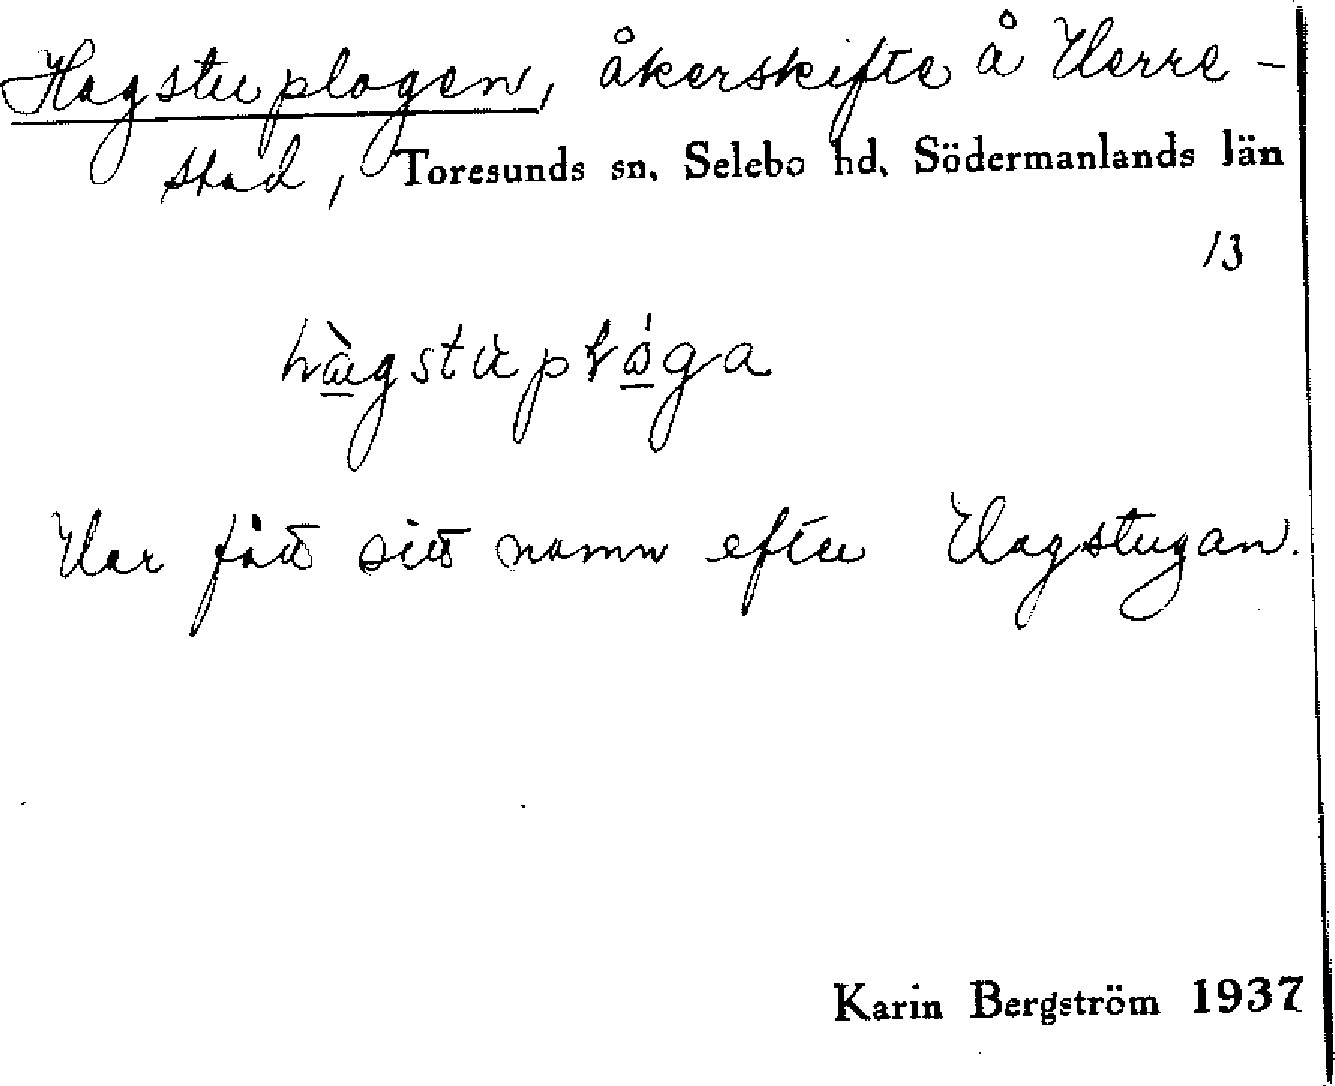 Hagstuplogen, åkerskifte å Herre-
stad, Toresunds sn, Selebo hd, Södermanlands län
13
Har fått sitt namn efter Hagstugan.
Karin Bergström 1937